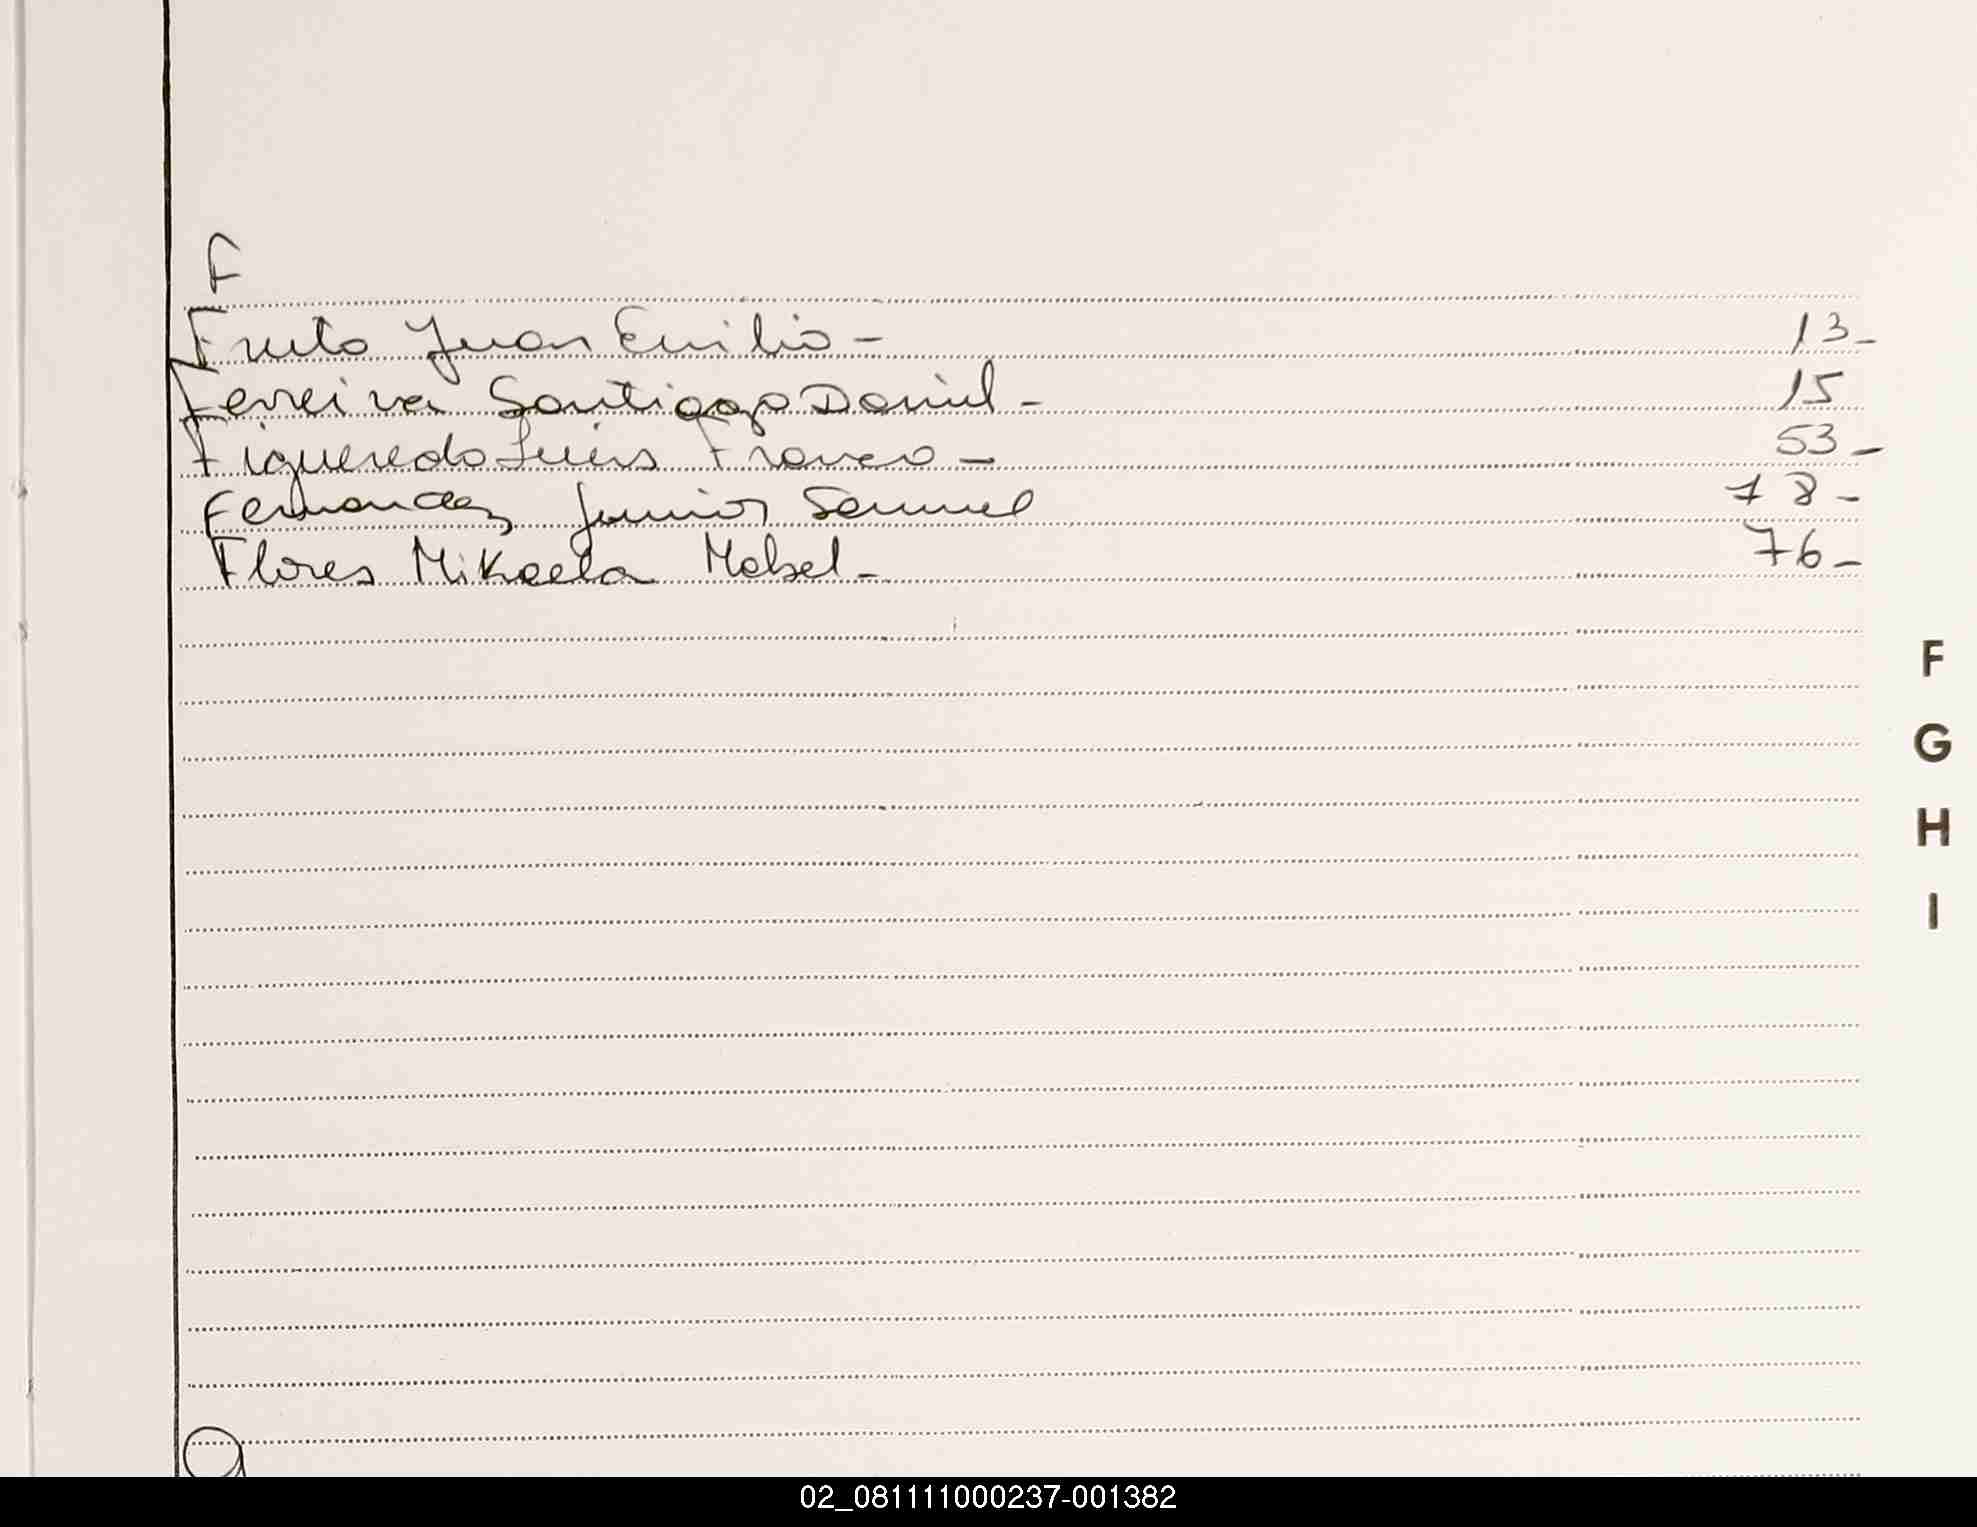 F
Fruto Juan Emilio - 13-
Ferreira Santiago Daniel - 15
Figueredo Luis Franco - 53-
Fernandez Junior Samuel 78-
Flores Mikaela Mabel - 76-
F
G
H
I
02_081111000237-001382